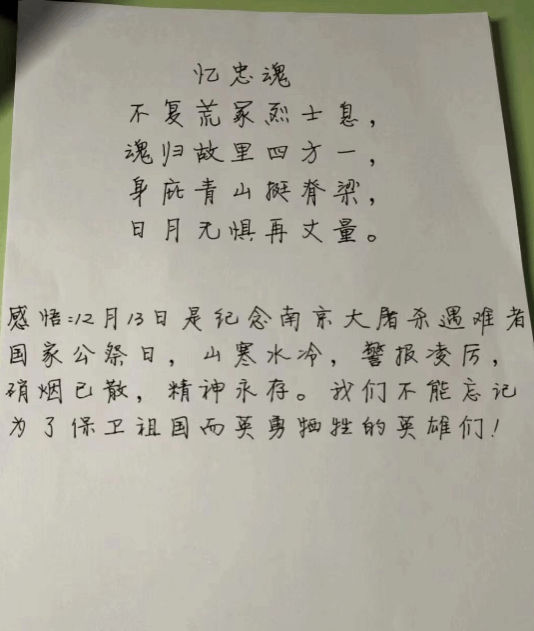 忆忠魂
不复荒冢烈士息，
魂归故里四方一，
身庇青山挺脊梁，
日月无惧再丈量。
感悟：12月13日是纪念南京大屠杀遇难者
国家公祭日，山寒水冷，警报凌厉，
硝烟已散，精神永存。我们不能忘记
为了保卫祖国而英勇牺牲的英雄们！